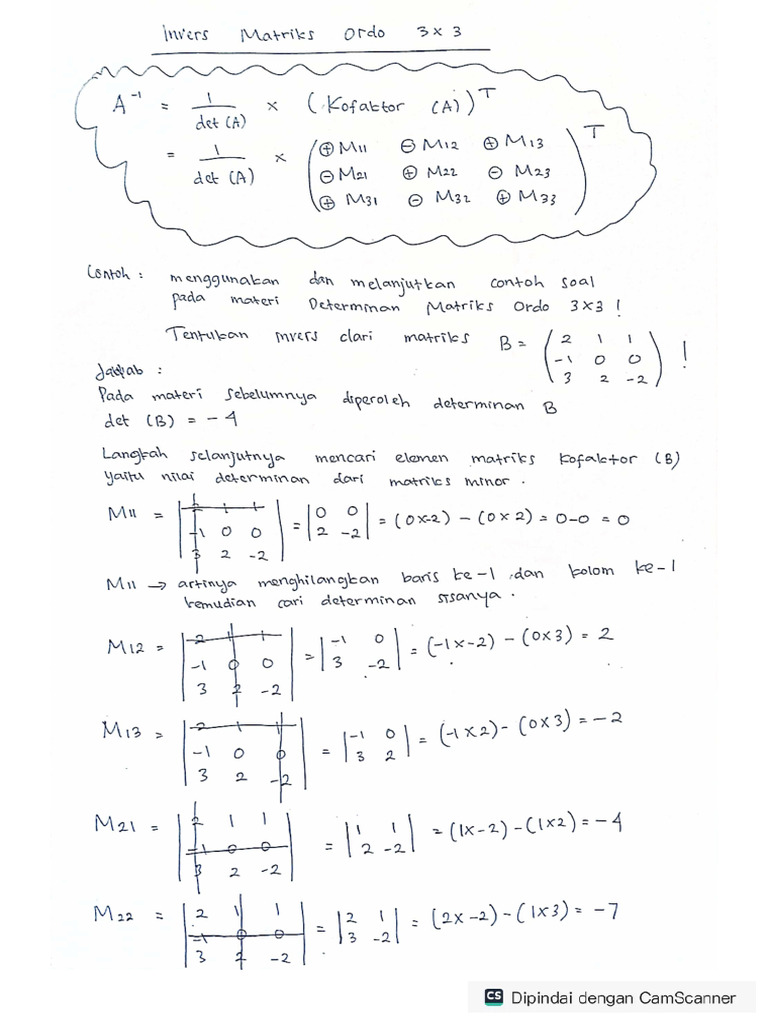 invers Matriks Ordo 3 x 3
A⁻¹ = 1/det (A) x (Kofaktor (A))ᵀ
= 1/det (A) x (⊕ M11 ⊖ M12 ⊕ M13
⊖ M21 ⊕ M22 ⊖ M23
⊕ M31 ⊖ M32 ⊕ M33)ᵀ
Contoh : menggunakan dan melanjutkan contoh soal
pada materi Determinan Matriks Ordo 3x3 !
Tentukan invers dari matriks B = (2 1 1
-1 0 0
3 2 -2) !
Jawab :
Pada materi sebelumnya diperoleh determinan B
det (B) = -4
Langkah selanjutnya mencari elemen matriks kofaktor (B)
yaitu nilai determinan dari matriks minor.
M11 = |2 1 1
-1 0 0
3 2 -2| = |0 0
2 -2| = (0x-2) - (0x2) = 0-0 = 0
M11 → artinya menghilangkan baris ke-1 dan kolom ke-1
kemudian cari determinan sisanya.
M12 = |2 1 1
-1 0 0
3 2 -2| = |-1 0
3 -2| = (-1x-2) - (0x3) = 2
M13 = |2 1 1
-1 0 0
3 2 -2| = |-1 0
3 2| = (-1x2) - (0x3) = -2
M21 = |2 1 1
-1 0 0
3 2 -2| = |1 1
2 -2| = (1x-2) - (1x2) = -4
M22 = |2 1 1
-1 0 0
3 2 -2| = |2 1
3 -2| = (2x-2) - (1x3) = -7
CS Dipindai dengan CamScanner